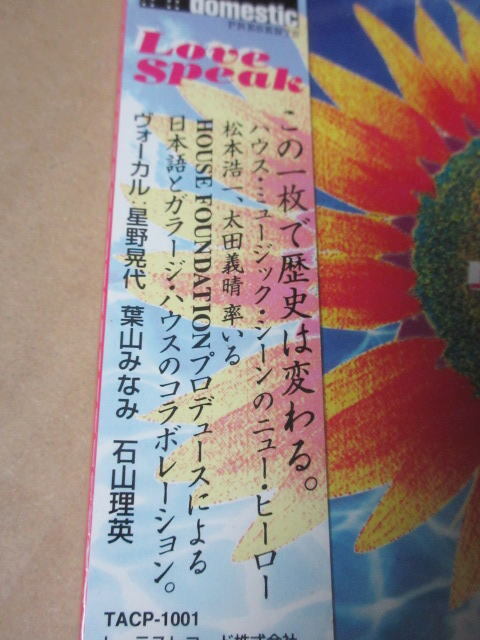 domestic
PRESENTS
Love
Speak
この一枚で歴史は変わる。
ハウス・ミュージック・シーンのニュー・ヒーロー
松本浩一、太田義晴 率いる
HOUSE FOUNDATIONプロデュースによる
日本語とガラージ・ハウスのコラボレーション。
ヴォーカル:星野晃代 葉山みなみ 石山理英
TACP-1001